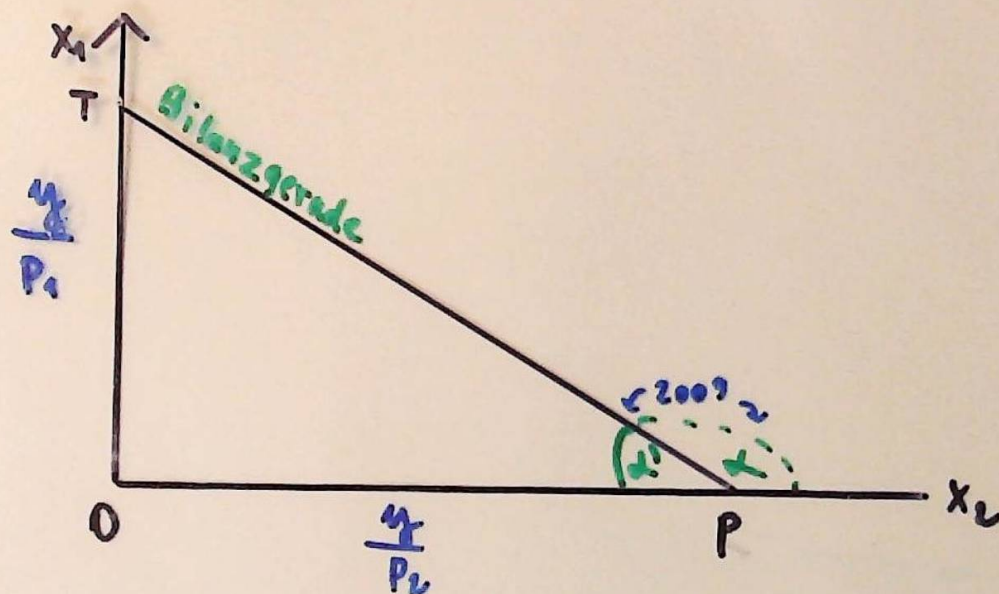 x₁
T
Bilanzgerade
y
p₁
200g
α'
α
O
y
p₂
P
x₂